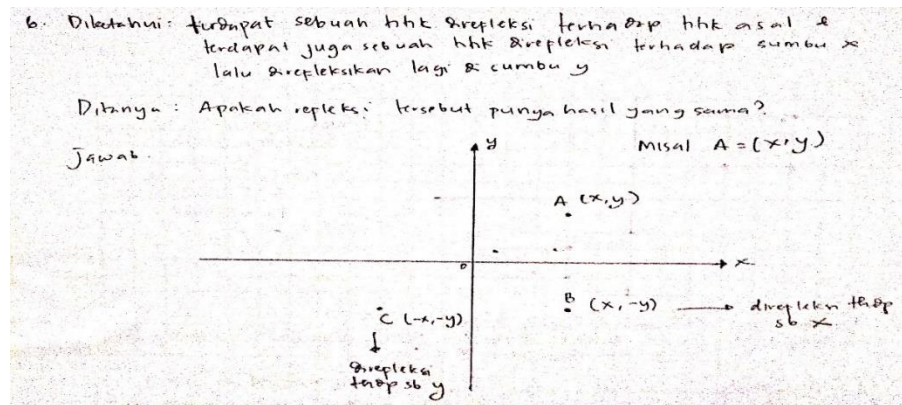 6. Diketahui: terdapat sebuah ttk direfleksi terhadap ttk asal &
terdapat juga sebuah ttk direfleksi terhadap sumbu x
lalu direfleksikan lagi di sumbu y
Ditanya: Apakah refleksi tersebut punya hasil yang sama?
Jawab.
Misal A = (x,y)
y
A (x,y)
0
x
B (x,-y) → direfleksi thdp
sb x
C (-x,-y)
↓
direfleksi
thdp sb y